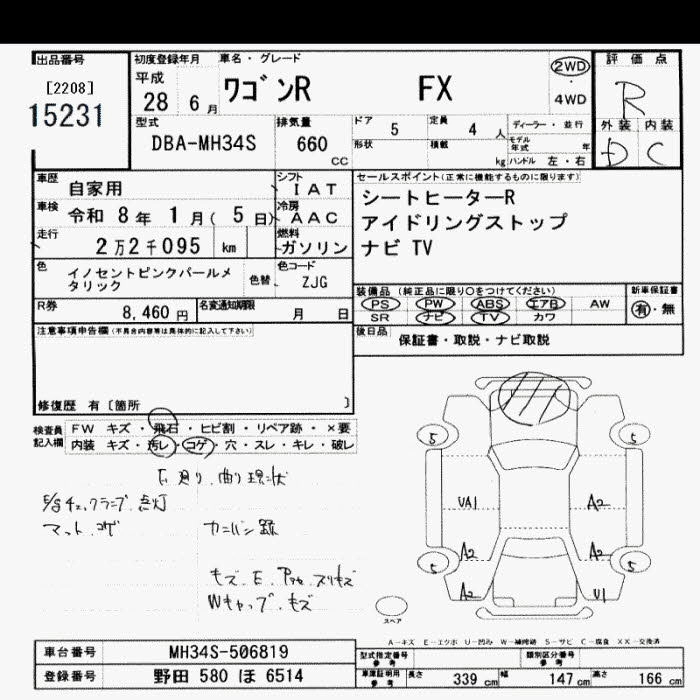 出品番号 初度登録年月 車名・グレード 評価点
[2208] 平成 ワゴンR FX 2WD R
15231 28 6月 4WD
型式 排気量 ドア 定員 ディーラー・並行 外装 内装
DBA-MH34S 660 cc 5 4 人 D C
形状 積載 kg モデル年式 年 ハンドル 左・右
車歴 自家用 シフト IAT セールスポイント(正常に機能するものに限ります)
車検 令和 8年 1月( 5日) 冷房 AAC シートヒーターR
走行 2万2千095 km 燃料 ガソリン アイドリングストップ
ナビ TV
色 イノセントピンクパールメタリック 色替 色コード ZJG
装備品 (純正品に限り○をつけてください) 新車保証書
R券 8,460円 名変通知期限 月 日 PS PW ABS エアB AW 有・無
SR ナビ TV カワ
注意事項申告欄(不具合内容等は具体的に記入して下さい) 後日品 保証書・取説・ナビ取説
修復歴 有〔箇所 〕
検査員記入欄 FW キズ・飛石・ヒビ割・リペア跡・×要
内装 キズ・汚レ・コゲ・穴・スレ・キレ・破レ
5 5
現状
点灯
UA1 A2
A2 A2
5 5
A2 U1
Wキャップ.キズ
スペア
A-キズ E-エクボ U-凹み W-補修跡 S-サビ C-腐食 XX-交換済
車台番号 MH34S-506819 型式指定番号 参考 類別区分番号 参考
登録番号 野田 580 ほ 6514 車庫証明用 参考 長さ 339 cm 幅 147 cm 高さ 166 cm